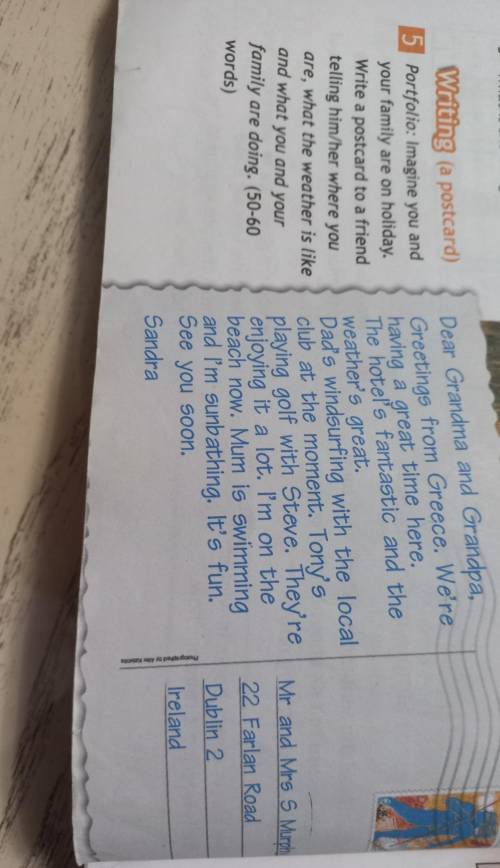 Writing (a postcard)
5 Portfolio: Imagine you and
your family are on holiday.
Write a postcard to a friend
telling him/her where you
are, what the weather is like
and what you and your
family are doing. (50-60
words)
Dear Grandma and Grandpa,
Greetings from Greece. We're
having a great time here.
The hotel's fantastic and the
weather's great.
Dad's windsurfing with the local
club at the moment. Tony's
playing golf with Steve. They're
enjoying it a lot. I'm on the
beach now. Mum is swimming
and I'm sunbathing. It's fun.
See you soon.
Sandra
Mr and Mrs S
22 Farlan Road
Dublin 2
Ireland